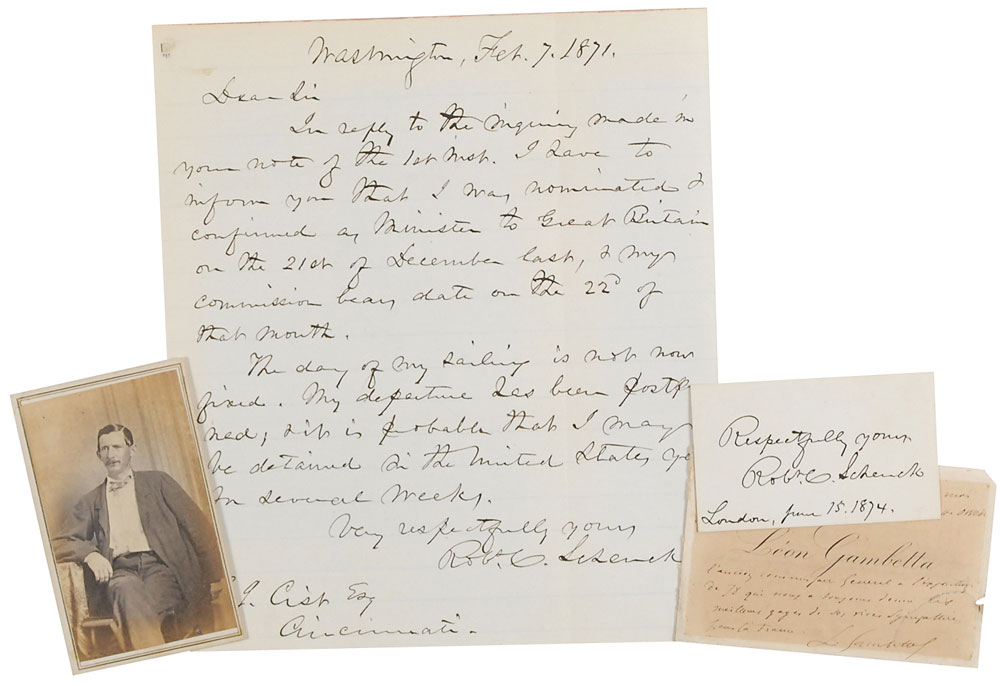 Washington, Feb. 7. 1871.
Dear Sir
In reply to the inquiry made in
your note of the 1st inst. I have to
inform you that I was nominated &
confirmed as Minister to Great Britain
on the 21st of December last, & my
commission bears date on the 22d of
that month.
The day of my sailing is not now
fixed. My departure has been postpo
ned; & it is probable that I may
be detained in the United States ye
for several weeks.
Very respectfully yours
Robt. C. Schenck
J. Cist Esq
Cincinnati.
Respectfully yours
Robt. C. Schenck
London, June 15. 1874.
Léon Gambetta
l'ancien commissaire Général à l'exposition
de 78 qui nous a toujours donné les
meilleurs gages de ses vives sympathies
pour la France.
L. Gambetta